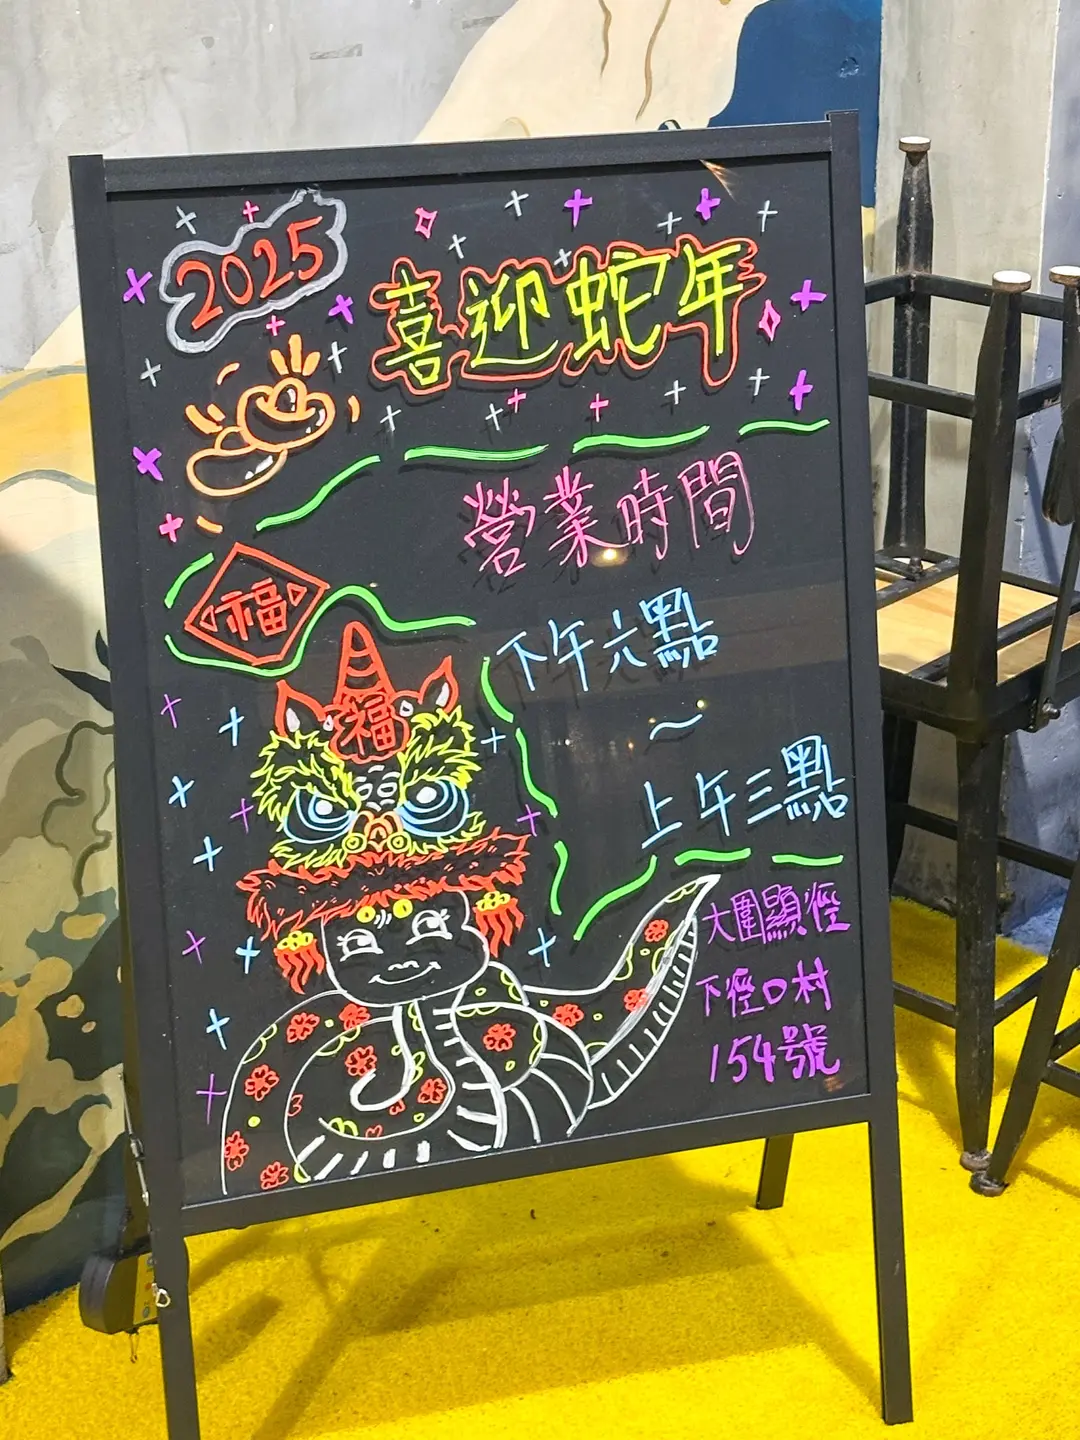 2025
喜迎蛇年
營業時間
福
下午六點
~
上午三點
福
大圍顯徑
下徑口村
154號